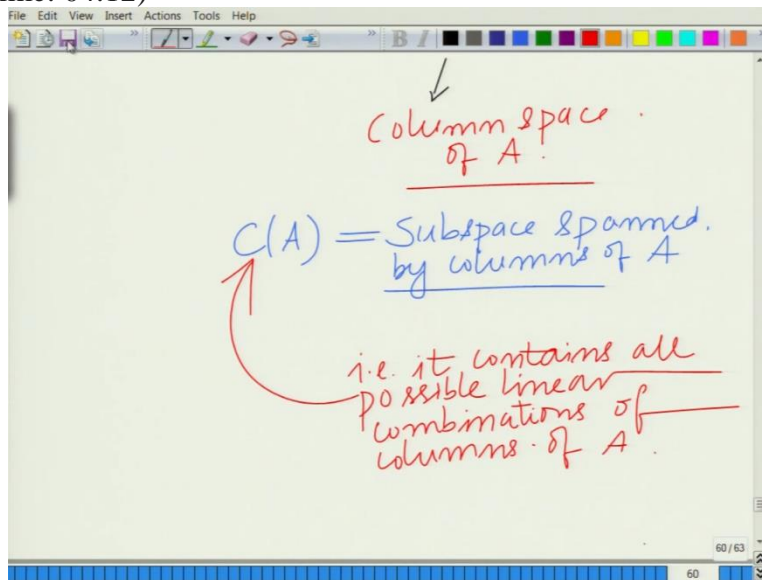 File Edit View Insert Actions Tools Help
B I
Column space.
of A.
C(A) = Subspace spanned.
by columns of A
i.e. it contains all
possible linear
combinations of
columns. of A.
60/63
60